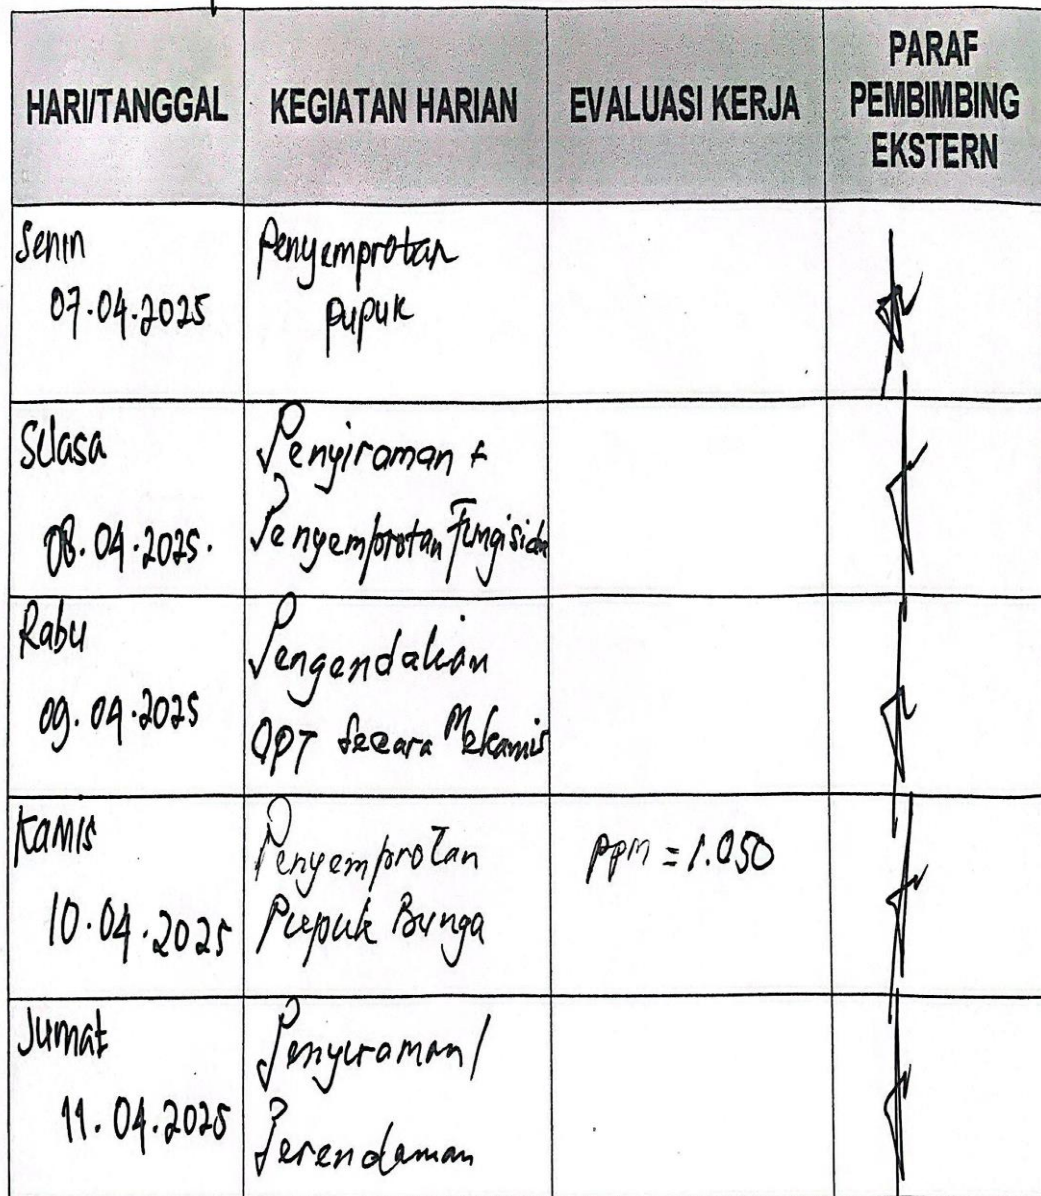 HARI/TANGGAL
KEGIATAN HARIAN
EVALUASI KERJA
PARAF
PEMBIMBING
EKSTERN
Senin
07.04.2025
Penyemprotan
pupuk
Selasa
08.04.2025.
Penyiraman +
Penyemprotan Fungisida
Rabu
09.04.2025
Pengendalian
OPT Secara Mekanis
Kamis
10.04.2025
Penyemprotan
Pupuk Bunga
ppm = 1.050
Jumat
11.04.2025
Penyiraman /
Perendaman